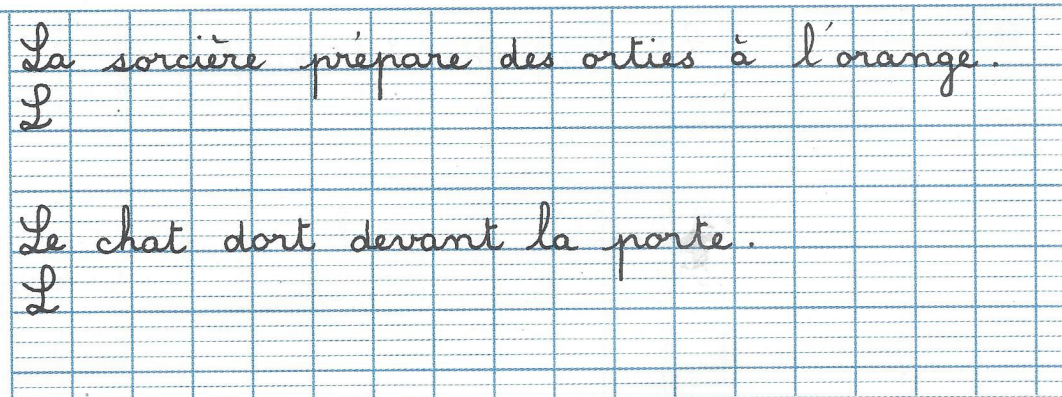 La sorcière prépare des orties à l'orange.
L
Le chat dort devant la porte.
L